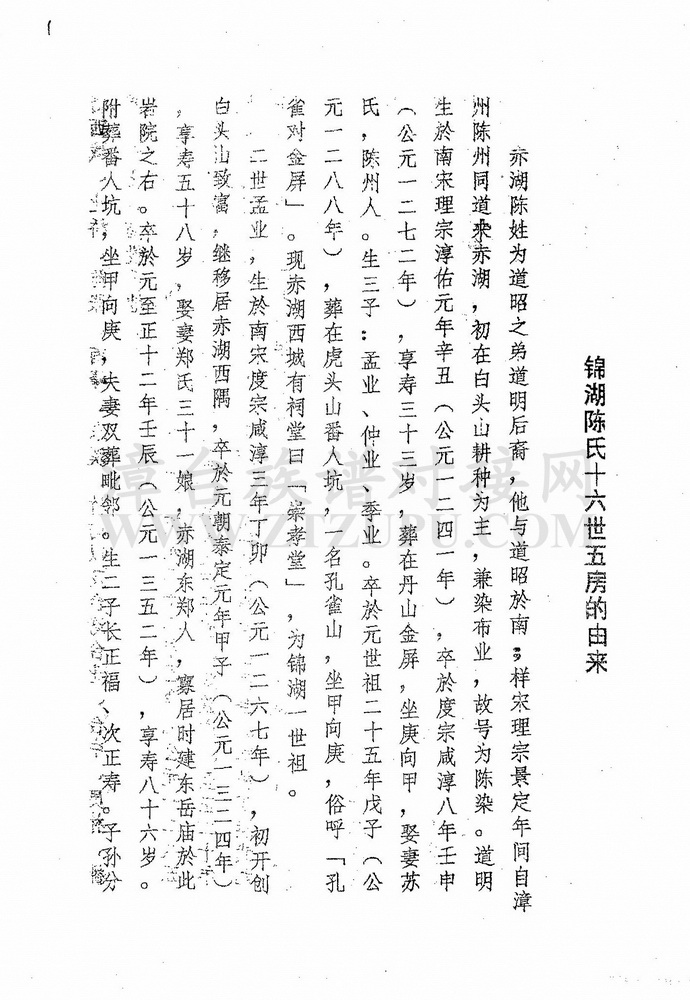 锦湖陈氏十六世五房的由来
赤湖陈姓为道昭之弟道明后裔，他与道昭於南；样宋理宗景定年间自漳
州陈州同道来赤湖，初在白头山耕种为主，兼染布业，故号为陈染。道明
生於南宋理宗淳佑元年辛丑（公元一二四一年），卒於度宗咸淳八年壬申
（公元一二七二年），享寿三十三岁，葬在丹山金屏，坐庚向甲，娶妻苏
氏，陈州人。生三子：孟业、仲业、季业。卒於元世祖二十五年戊子（公
元一二八八年），葬在虎头山番人坑，一名孔雀山，坐甲向庚，俗呼「孔
雀对金屏」。现赤湖西城有祠堂曰「崇孝堂」，为锦湖一世祖。
二世孟业，生於南宋度宗咸淳三年丁卯（公元一二六七年），初开创
白头山致富，继移居赤湖西隅，卒於元朝泰定元年甲子（公元一三二四年）
，享寿五十八岁，娶妻郑氏三十一娘，赤湖东郑人，寡居时建东岳庙於此
岩院之右。卒於元至正十二年壬辰（公元一三五二年），享寿八十六岁。
附葬番人坑，坐甲向庚，夫妻双葬毗邻。生二子长正福、次正寿。子孙分
漳台族谱对接网
WWW.ZTZUPU.COM